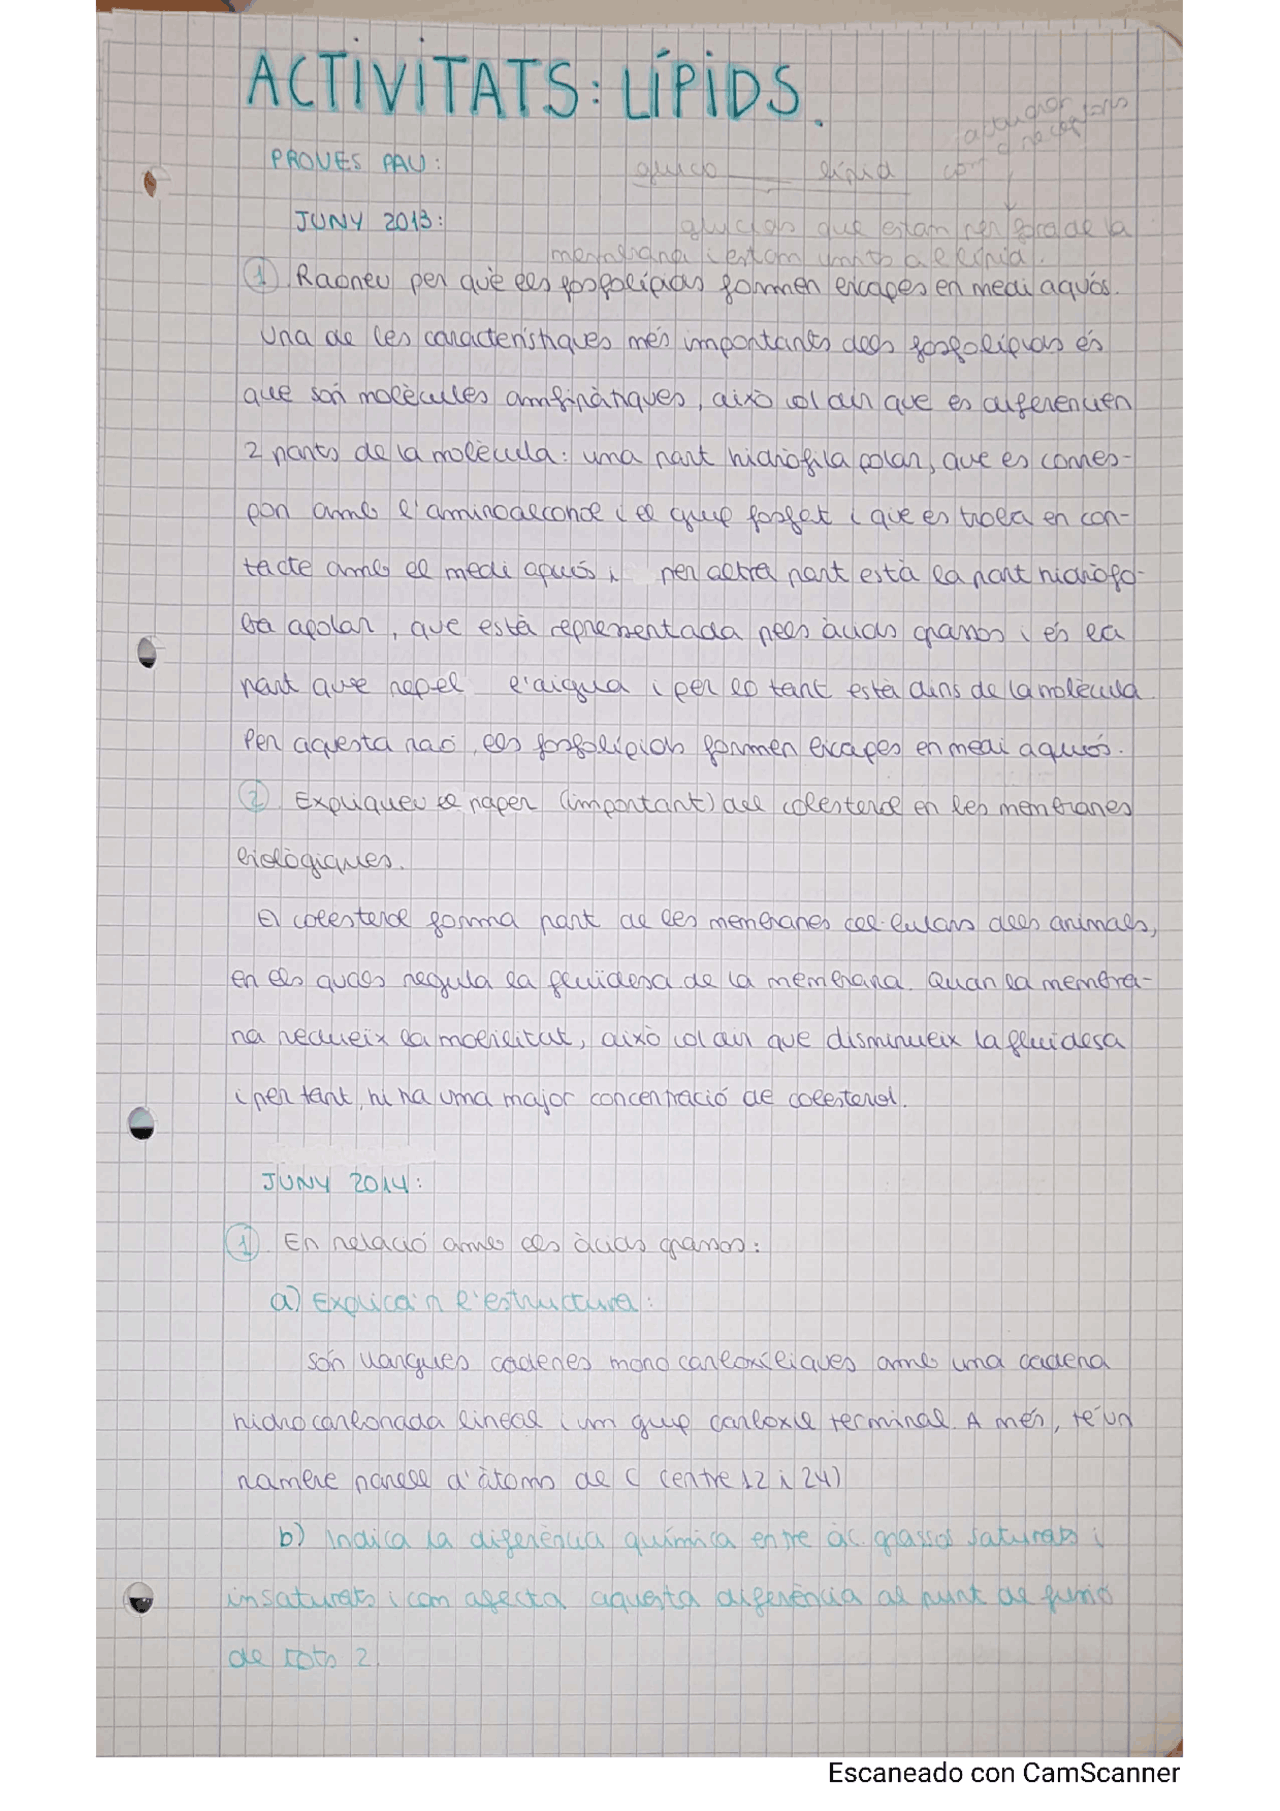 ACTIVITATS: LÍPIDS.
PROVES PAU:
gluco lípid com
JUNY 2013:
glúcids que estam per fora de la
membrana i estam units a lípid.
1 Raoneu per què els fosfolípids formen bicapes en medi aquós.
Una de les característiques més importants dels fosfolípids és
que són molècules amfipàtiques, això vol dir que es diferencien
2 parts de la molècula: una part hidròfila polar, que es corres-
pon amb l'aminoalcohol i el grup fosfat i que es troba en con-
tacte amb el medi aquós i per altra part està la part hidròfo-
ba apolar, que està representada pels àcids grassos i és la
part que repel l'aigua i per lo tant està dins de la molècula.
Per aquesta raó, els fosfolípids formen bicapes en medi aquós.
2 Expliqueu el paper (important) del colesterol en les membranes
biològiques.
El colesterol forma part de les membranes cel·lulars dels animals,
en els quals regula la fluidesa de la membrana. Quan la membra-
na redueix la mobilitat, això vol dir que disminueix la fluidesa
i per tant, hi ha una major concentració de colesterol.
JUNY 2014:
1 En relació amb els àcids grassos:
a) Explica'n l'estructura:
són llargues cadenes monocarboxíliques amb una cadena
hidrocarbonada lineal i un grup carboxil terminal. A més, té un
nombre parell d'àtoms de C (entre 12 i 24)
b) Indica la diferència química entre àc. grassos saturats i
insaturats i com afecta aquesta diferència al punt de fusió
de tots 2.
Escaneado con CamScanner